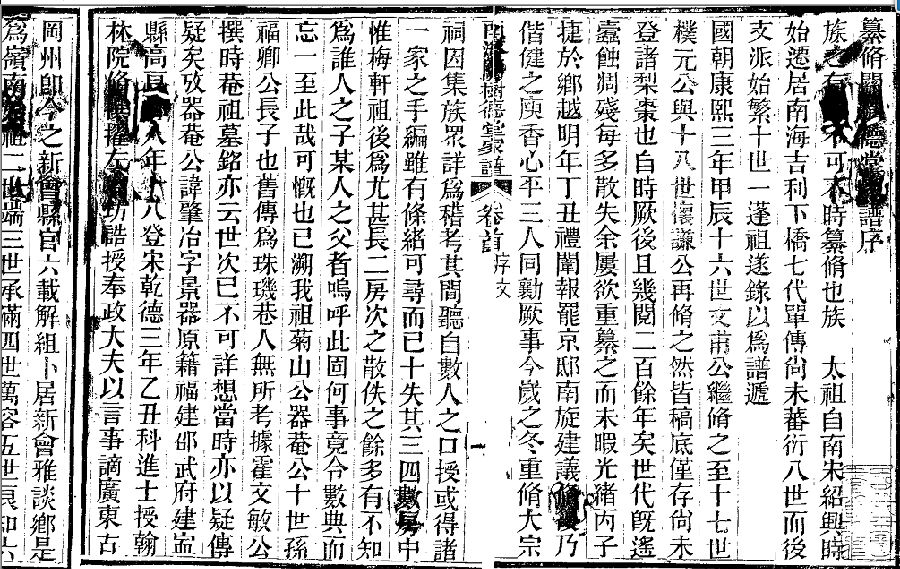 纂脩關樹德堂家譜序
族之有不可不時纂脩也族　太祖自南宋紹興時
始遷居南海吉利下橋七代單傳尙未蕃衍八世而後
支派始繁十世一蓬祖遂錄以爲譜遞
國朝康熙三年甲辰十六世文甫公繼脩之至十七世
樸元公與十八世謙公再脩之然皆稿底僅存尙未
登諸梨棗也自時厥後且幾閱二百餘年矣世代旣遙
蠹蝕凋殘每多散失余屢欲重纂之而未暇光緖丙子
捷於鄉越明年丁丑禮闈報罷京邸南旋建議脩乃
偕健之庾香心平三人同勷厥事今歲之冬重脩大宗
南海關樹德堂家譜　卷首　序文　一
祠因集族衆詳爲稽考其間聽自數人之口授或得諸
一家之手編雖有條緖可尋而已十失其三四數房中
惟梅軒祖後爲尤甚長二房次之散佚之餘多有不知
爲誰人之子某人之父者嗚呼此固何事竟令數典而
忘一至此哉可慨也已溯我祖菊山公器菴公十世孫
福卿公長子也舊傳爲珠璣巷人無所考據霍文敏公
撰時菴祖墓銘亦云世次已不可詳想當時亦以疑傳
疑矣攷器菴公諱肇冶字景器原籍福建邵武府建寍
縣高長人年十八登宋乾德三年乙丑科進士授翰
林院脩撰擢左功誥授奉政大夫以言事謫廣東古
岡州卽今之新會縣官六載解組卜居新會雅談鄉是
爲嶺南祖二世端三世承滿四世萬容五世良和六